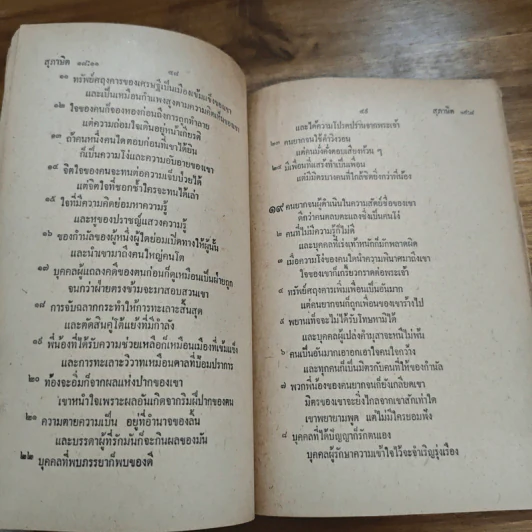 สุภาษิต ๑๘:๑๑
๔๘
๑๑ ทรัพย์ศฤงคารของเศรษฐีเป็นเมืองเข้มแข็งของเขา
และเป็นเหมือนกำแพงสูงตามความคิดเห็นของเขา
๑๒ ใจของคนก็จองหองก่อนถึงการถูกทำลาย
แต่ความถ่อมใจเดินอยู่หน้าเกียรติ
๑๓ ถ้าคนหนึ่งคนใดตอบก่อนที่เขาได้ยิน
ก็เป็นความโง่และความอับอายของเขา
๑๔ จิตใจของคนจะทนต่อความเจ็บป่วยได้
แต่จิตใจที่ชอกช้ำใครจะทนได้เล่า
๑๕ ใจที่มีความคิดย่อมหาความรู้
และหูของปราชญ์แสวงความรู้
๑๖ ของกำนัลของผู้หนึ่งผู้ใดย่อมเปิดทางให้ผู้นั้น
และนำเขามาถึงคนใหญ่คนโต
๑๗ บุคคลผู้แถลงคดีของตนก่อนก็ดูเหมือนเป็นฝ่ายถูก
จนกว่าฝ่ายตรงข้ามจะมาสอบสวนเขา
๑๘ การจับฉลากกระทำให้การทะเลาะสิ้นสุด
และตัดสินคู่โต้แย้งที่มีกำลัง
๑๙ พี่น้องที่ได้รับความช่วยเหลือก็เหมือนเมืองที่เข้มแข็ง
และการทะเลาะวิวาทเหมือนดาลที่ป้อมปราการ
๒๐ ท้องจะอิ่มก็จากผลแห่งปากของเขา
เขาหนำใจเพราะผลอันเกิดจากริมฝีปากของตน
๒๑ ความตายความเป็น อยู่ที่อำนาจของลิ้น
และบรรดาผู้ที่รักมันก็จะกินผลของมัน
๒๒ บุคคลที่พบภรรยาก็พบของดี
๔๙
สุภาษิต ๑๙:๘
และได้ความโปรดปรานจากพระเจ้า
๒๓ คนยากจนใช้คำวิงวอน
แต่คนมั่งคั่งตอบเสียงห้วน ๆ
๒๔ มีเพื่อนที่แสร้งทำเป็นเพื่อน
แต่มีมิตรบางคนที่ใกล้ชิดยิ่งกว่าพี่น้อง
๑๙ คนยากจนผู้ดำเนินในความสัตย์ซื่อของเขา
ดีกว่าคนตลบตะแลงซึ่งเป็นคนโง่
๒ คนที่ไม่มีความรู้ก็ไม่ดี
และบุคคลที่เร่งเท้าหนักก็มักพลาดผิด
๓ เมื่อความโง่ของคนใดนำความพินาศมาถึงเขา
ใจของเขาก็เกรี้ยวกราดต่อพระเจ้า
๔ ทรัพย์ศฤงคารเพิ่มเพื่อนเป็นอันมาก
แต่คนยากจนก็ถูกเพื่อนของเขาร้างไป
๕ พยานเท็จจะไม่ได้รับโทษหามิได้
และบุคคลผู้เปล่งคำมุสาจะหนีไม่พ้น
๖ คนเป็นอันมากเอาอกเอาใจคนใจกว้าง
และทุกคนก็เป็นมิตรกับคนที่ให้ของกำนัล
๗ พวกพี่น้องของคนยากจนก็ยังเกลียดเขา
มิตรของเขาจะยิ่งไกลจากเขาสักเท่าใด
เขาพยายามพูด แต่ไม่มีใครยอมฟัง
๘ บุคคลที่ได้ปัญญาก็รักตนเอง
บุคคลผู้รักษาความเข้าใจไว้จะจำเริญรุ่งเรือง